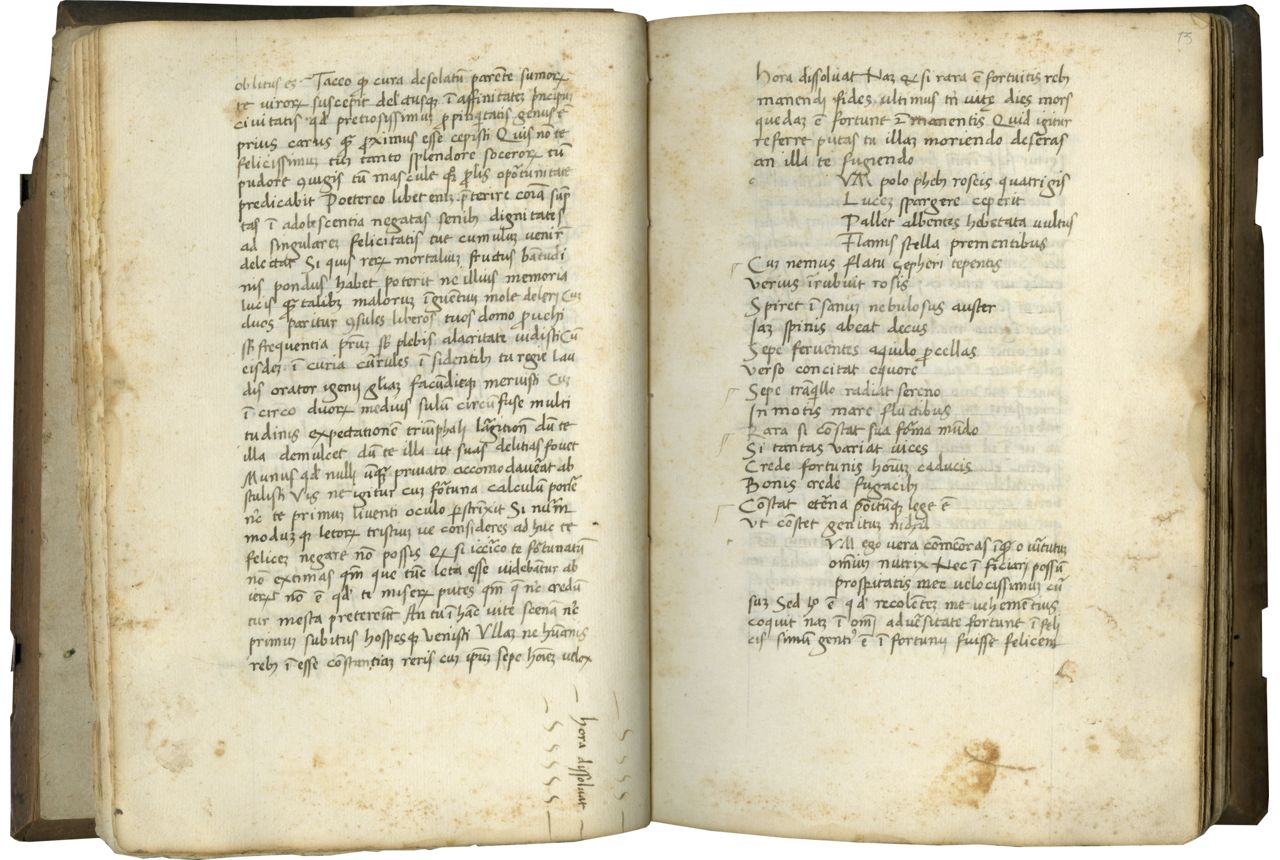 oblitus es Taceo qͥ cura desolatū parente sumorꝝ
te virorꝝ suscepit delectusqꝫ ī affinitateꝫ prīcipū
civitatis qd̕ pretiosissimuꝫ ꝓpinqtatis genus ē
prius carus qͣꝫ ꝓximus esse cepisti Quis nō te
felicissimuꝫ cuꝫ tanto splendore socerorꝝ cuꝫ
pudore ꝯiugis tūꝫ mascule qͣꝫ ꝓlis oportunitate
predicabit Poetereo libet eniꝫ p̄terire cōia sūp
tas ī adolescentia negatas senibꝫ dignitates
ad singulareꝫ felicitatis tue cumuluꝫ venire
delectat Si quis rerꝝ mortaliuꝫ fructus b̄atudi
nis pondus habet poterit ne illius memoria
lucis qͣtalibꝫ maloruꝫ īgruentiuꝫ mole deleri Cuꝫ
duos pariter ꝯsules liberos tuos domo ꝓuehi
sb̕ frequentia pr̄uꝫ sb̕ plebis alacritate uidisti Cū
eisdeꝫ ī curia cūrules īsidentibꝫ tu regie lau
dis orator igenij gl̄iaꝫ facūdieqꝫ meruisti Cuꝫ
ī circo duorꝝ medius sulūꝫ circūfuse multi
tudinis expectationē triūphali largitiōn dūꝫ te
illa demulcet dūꝫ te illa ut suas delitias fouet
Munus qd̕ nulli ūqͣꝫ privato accomodaverat ab
stulisti Vis ne igitur cuꝫ fortuna calculūꝫ ponere
nūc te primuꝫ liventi oculo perstrīxit Si nuꝫm
moduꝫqꝫ letorꝝ tristiuꝫ ve consideres adhuc te
feliceꝫ negare nōn possis Qͩ si iccirco te fortunatūꝫ
nōn extimas qm̄ que tūc leta esse videbāntur ab
ierūt nōn ē qd̕ ti miserꝝ putes qm̄ que nūc credūn
tur mesta pretereūt An tu ī hāc vite scenaꝫ nūc
primuꝫ subitus hospesqꝫ venisti Vllaꝫ ne humanis
rebꝫ īesse constantiaꝫ reris cuꝫ ipsuꝫ sepe hoīeꝫ velox
hora dissoluat
13
hora dissoluat Naꝫ & si rara ē fortuitis rebꝫ
manendi fides ultimus tn̄ vite dies mors
quedaꝫ ē fortune ēt manentis Quid igitur
referre putas tu illaꝫ moriendo deseras
an illa te fugiendo
c VM polo phebꝫ roseis quatrigis
Luceꝫ spargere ceperit
Pallet albentes hebetata vultus
Flamis stella prementibus
Cuꝫ nemus flatu zepheri tepentis
Verius īrubuit rosis
Spiret ī sanuꝫ nebulosus auster
Iaꝫ spinis abeat decus
Sepe ferventes aquilo ꝓcellas
Verso concitat equore
Sepe tranqͥllo radiat sereno
In motis mare fluctibus
Rara si constat sua forma mundo
Si tantas variat vices
Crede fortunis hoīuꝫ caducis
Bonis crede fugacibꝫ
Constat eterna positūqꝫ lege ē
Ut constet genituꝫ nichil
VM ego vera comēoras īqͣꝫ o virtutuꝫ
omniuꝫ nutrix Nec īficiari possuꝫ
prosperitatis mee velocissimuꝫ cur
suꝫ Sed hͦ ē qd̕ recolenteꝫ me vehementius
coquit naꝫ ī omī adversitate fortune īfeli
cissimuꝫ genus ē ī fortunij fuisse feliceꝫ